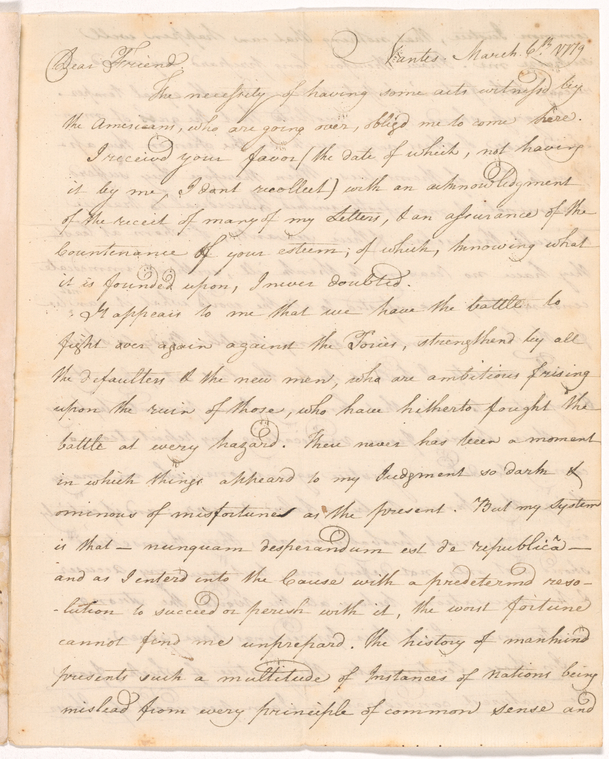 Nantes March. 6.th 1779
Dear Friend
The necessity of having some acts witness'd by
the Americans, who are going over, oblig'd me to come here.
I receivd your favor (the date of which, not having
it by me, I dont recollect) with an acknowledgment
of the receit of many of my Letters, & an assurance of the
Countenance of your esteem; of which, knowing what
it is founded upon, I never doubted.
It appears to me that we have the battle to
fight over again against the Tories, strengthend by all
the defaulters & the new men, who are ambitious of rising
upon the ruin of those, who have hitherto fought the
battle at every hazard. There never has been a moment
in which things appeard to my Judgment so dark &
ominous of misfortunes as the present. But my System
is that — nunquam desperandum est de republicâ —
and as I enterd into the Cause with a predetermd reso-
-lution to succeed or perish with it, the worst fortune
cannot find me unprepard. The history of mankind
presents such a multitude of Instances of Nations being
mislead from every principle of common sense and